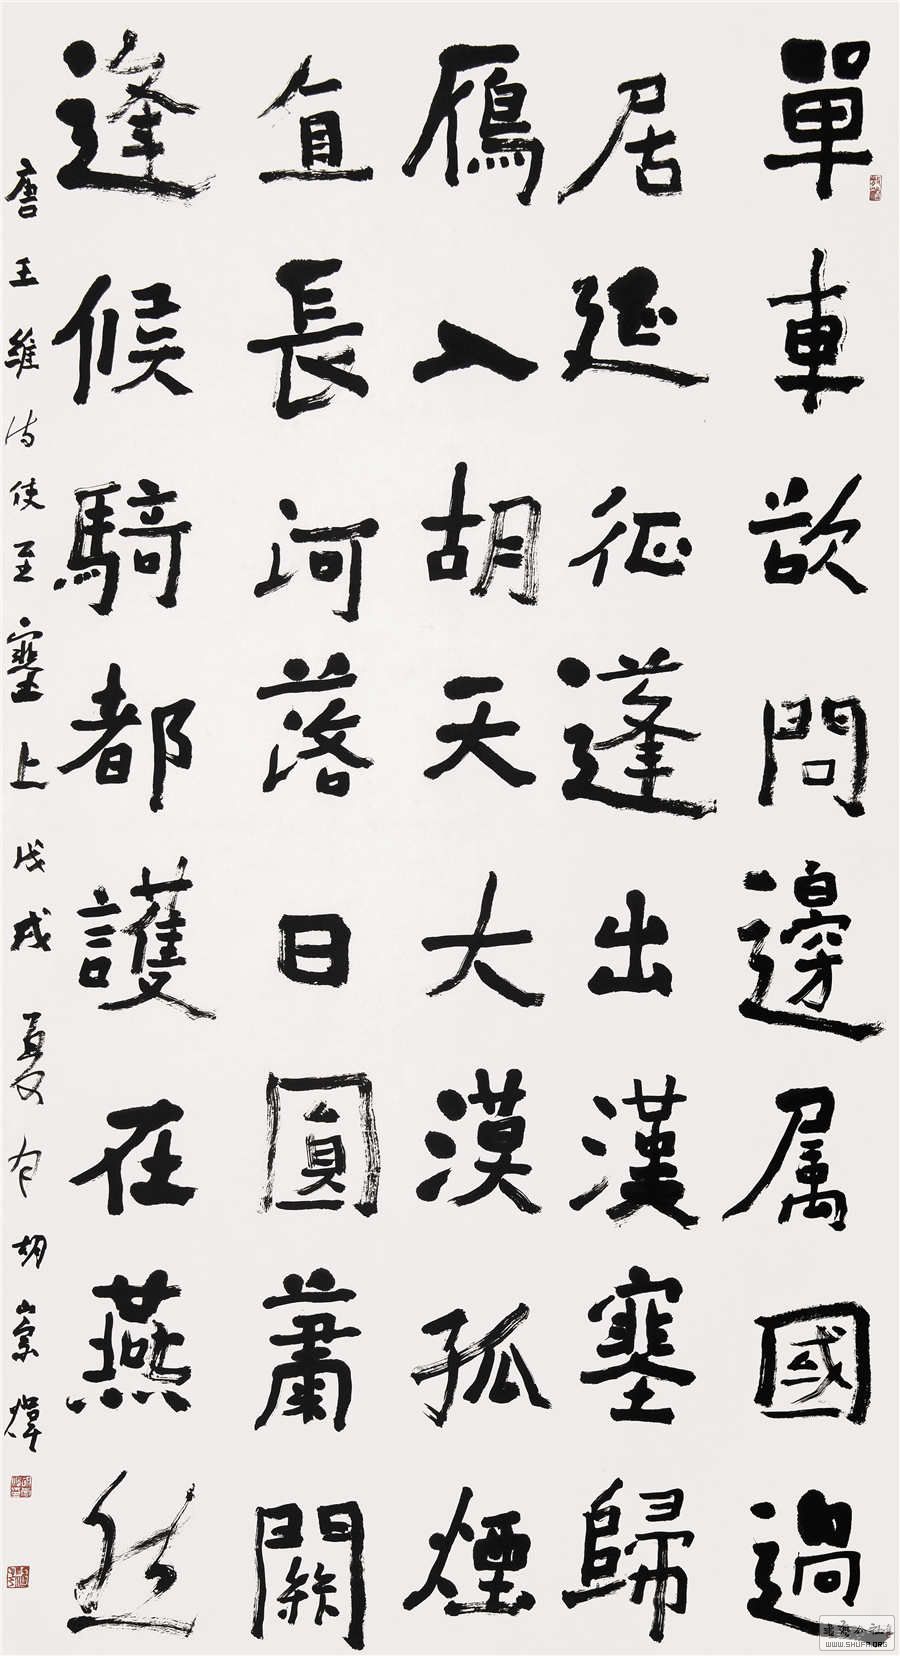 單車欲問邊属國過
居延征蓬出漢塞歸
鴈入胡天大漠孤煙
直長河落日圓蕭關
逢候騎都護在燕然
唐王維诗使至塞上戊戌夏胡崇煒
WWW.SHUFA.ORG